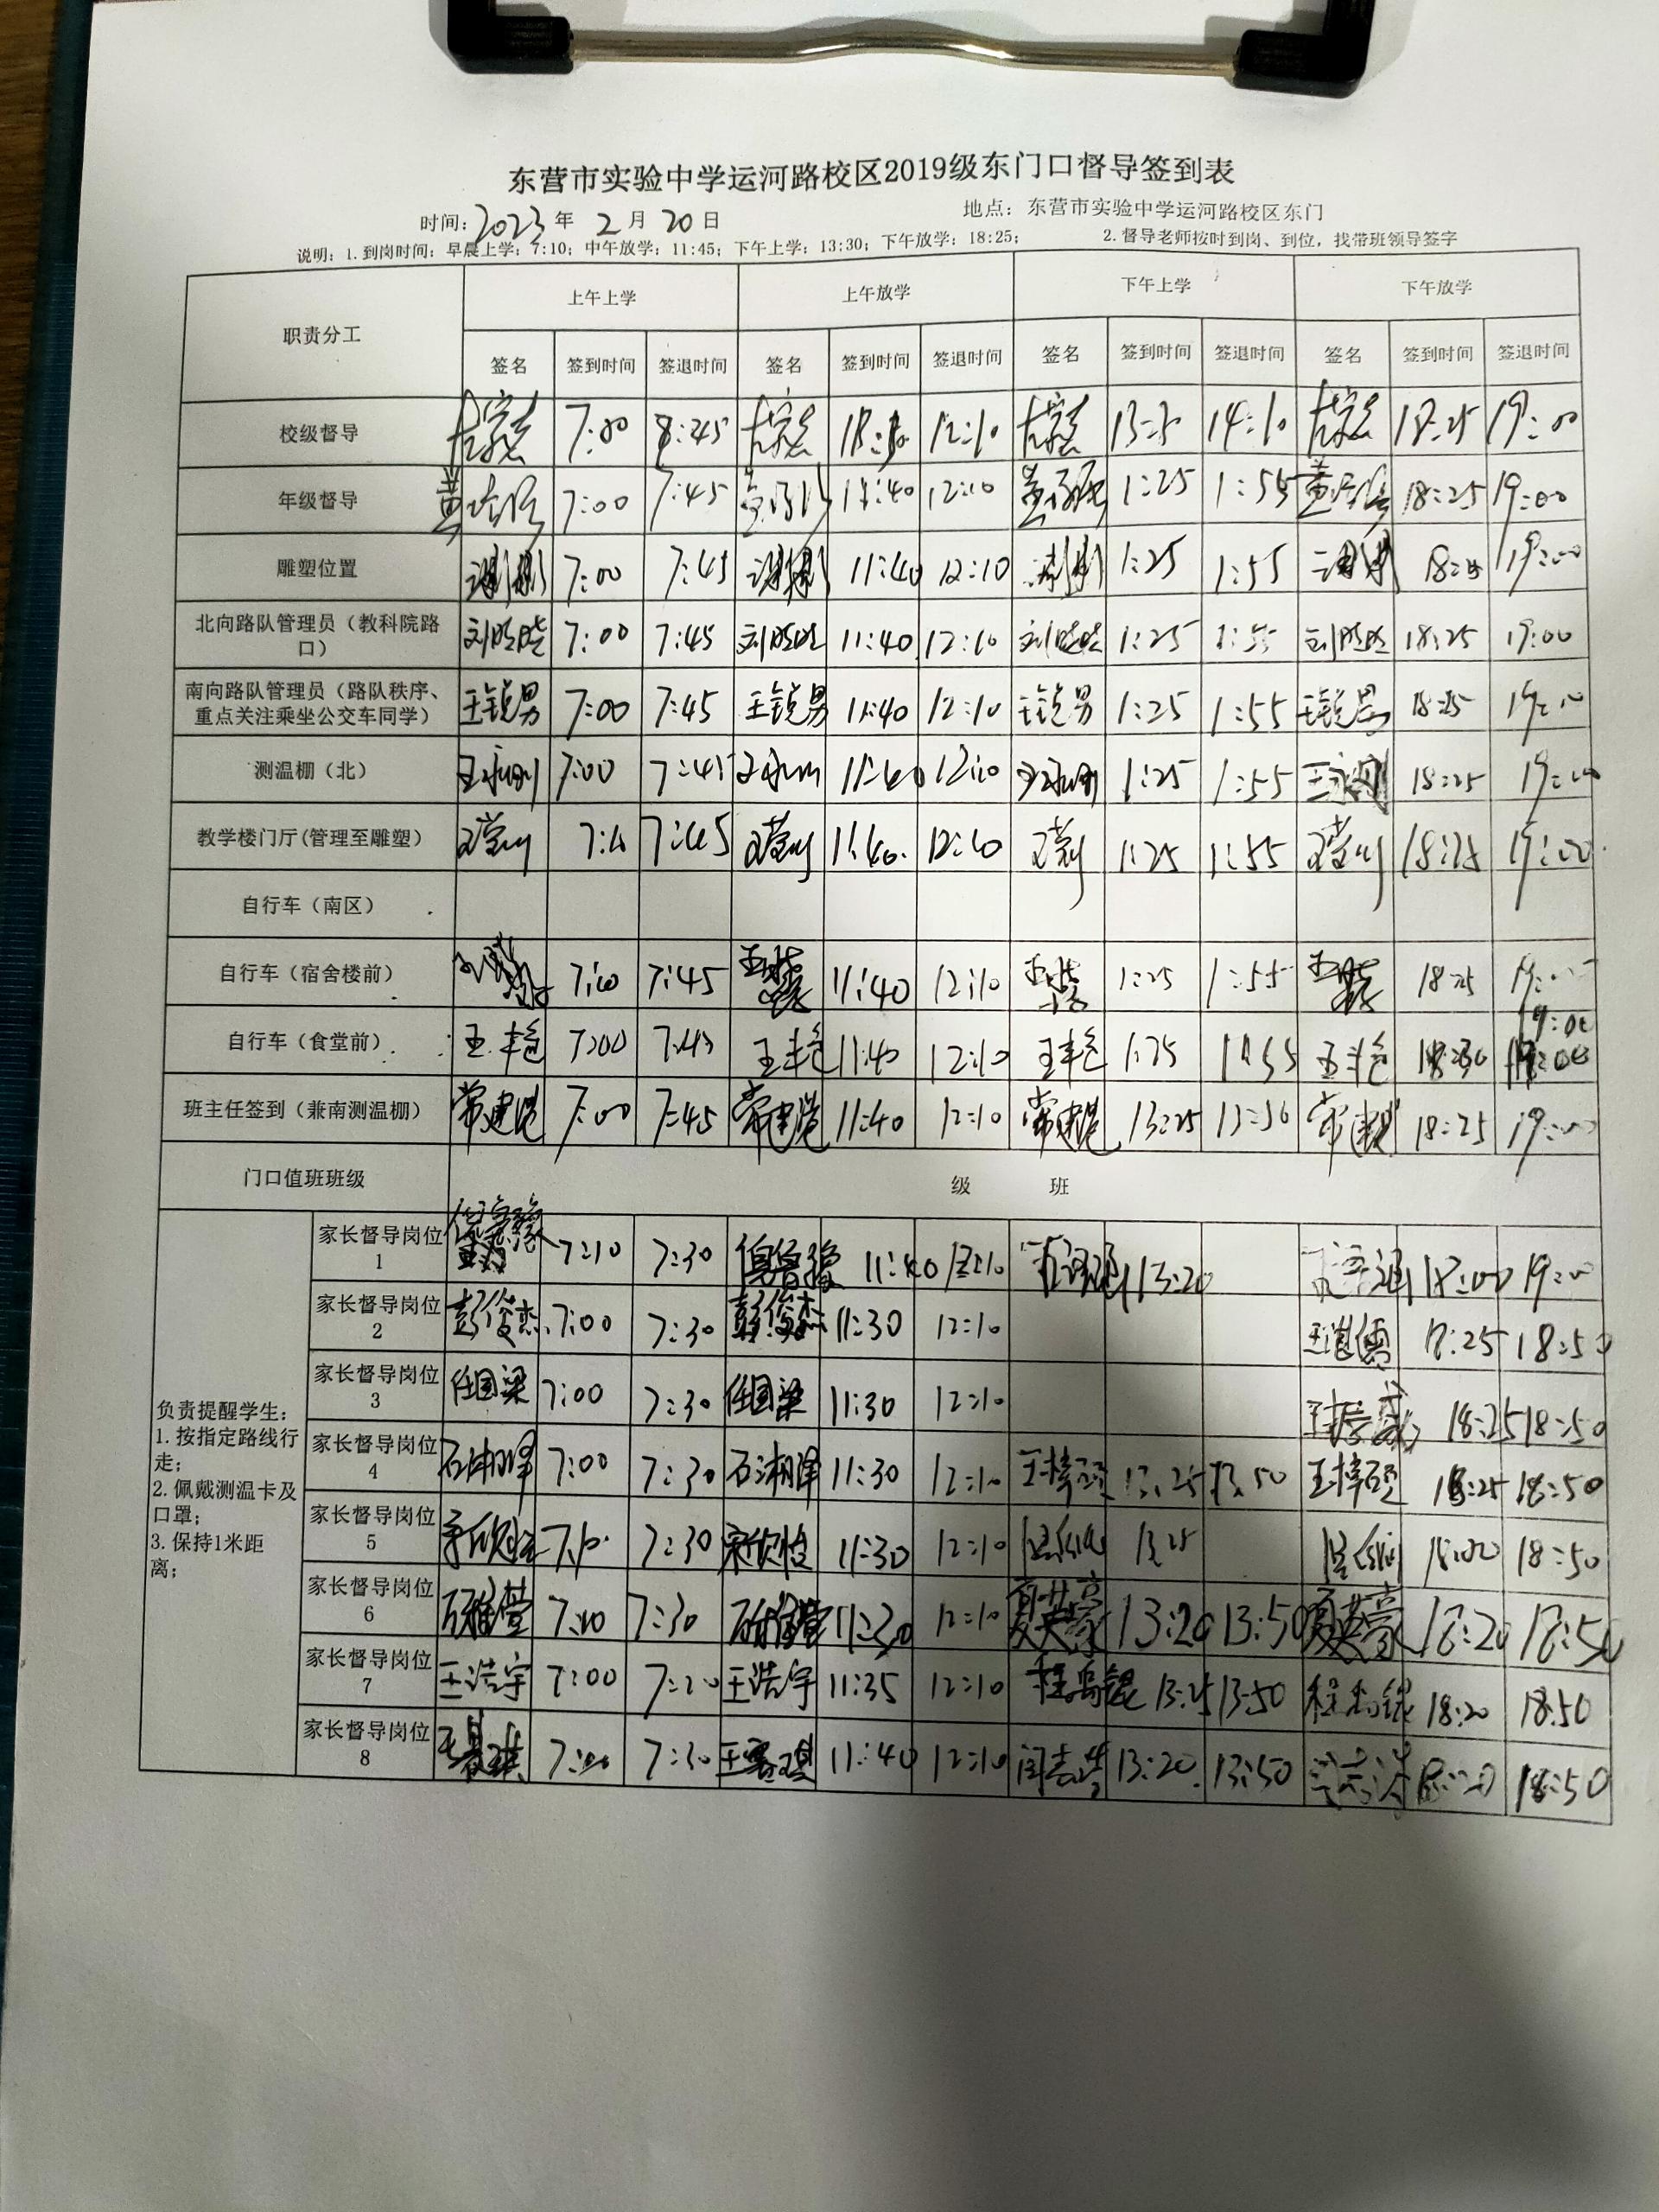 东营市实验中学运河路校区2019级东门口督导签到表
时间:2023年 2月 20日 地点:东营市实验中学运河路校区东门
说明:1.到岗时间:早晨上学:7:10;中午放学:11:45;下午上学:13:30;下午放学:18:25; 2.督导老师按时到岗、到位,找带班领导签字
职责分工 上午上学 上午放学 下午上学 下午放学
签名 签到时间 签退时间 签名 签到时间 签退时间 签名 签到时间 签退时间 签名 签到时间 签退时间
校级督导 7:00 8:45 12:10 14:10 18:25 19:00
年级督导 7:00 7:45 11:40 12:10 1:25 1:55 18:25 19:00
雕塑位置 7:00 7:45 11:40 12:10 1:25 1:55 19:00
北向路队管理员(教科院路
口) 刘晓晓 7:00 7:45 刘晓晓 11:40 12:10 刘晓晓 1:25 1:55 刘晓晓 18:25 19:00
南向路队管理员(路队秩序、
重点关注乘坐公交车同学) 王锐男 7:00 7:45 王锐男 11:40 12:10 王锐男 1:25 1:55 王锐男 18:25 19:00
测温棚(北) 王永刚 7:00 7:45 王永刚 11:40 12:10 王永刚 1:25 1:55 王永刚 18:25 19:00
教学楼门厅(管理至雕塑) 7:45 11:40. 12:10 1:25 1:55 18:25 19:00
自行车(南区)
自行车(宿舍楼前) 7:45 11:40 12:10 1:25 1:55 18:25 19:00
自行车(食堂前) 王丰艳 7:00 7:45 王丰艳 11:40 12:10 王丰艳 1:25 1:55 王丰艳 18:30 19:00
班主任签到(兼南测温棚) 常建港 7:00 7:45 常建港 11:40 12:10 常建港 13:25 常建港 18:25 19:00
门口值班班级 级 班
负责提醒学生:
1.按指定路线行
走;
2.佩戴测温卡及
口罩;
3.保持1米距
离;
家长督导岗位
1 7:10 7:30 11:40 12:10 13:20 18:00 19:00
家长督导岗位
2 彭俊杰 7:00 7:30 彭俊杰 11:30 12:10 18:25 18:50
家长督导岗位
3 任国梁 7:00 7:30 任国梁 11:30 12:10 18:25 18:50
家长督导岗位
4 石湘泽 7:00 7:30 石湘泽 11:30 12:10 王梓硕 13:25 13:50 王梓硕 18:25 18:50
家长督导岗位
5 7:30 宋欣怡 11:30 12:10 13:25 18:20 18:50
家长督导岗位
6 7:30 11:30 12:10 夏英豪 13:20 13:50 夏英豪 18:20 18:50
家长督导岗位
7 王浩宇 7:00 王浩宇 11:35 12:10 13:25 13:50 18:20 18:50
家长督导岗位
8 7:00 7:30 11:40 12:10 13:20 13:50 18:20 18:50